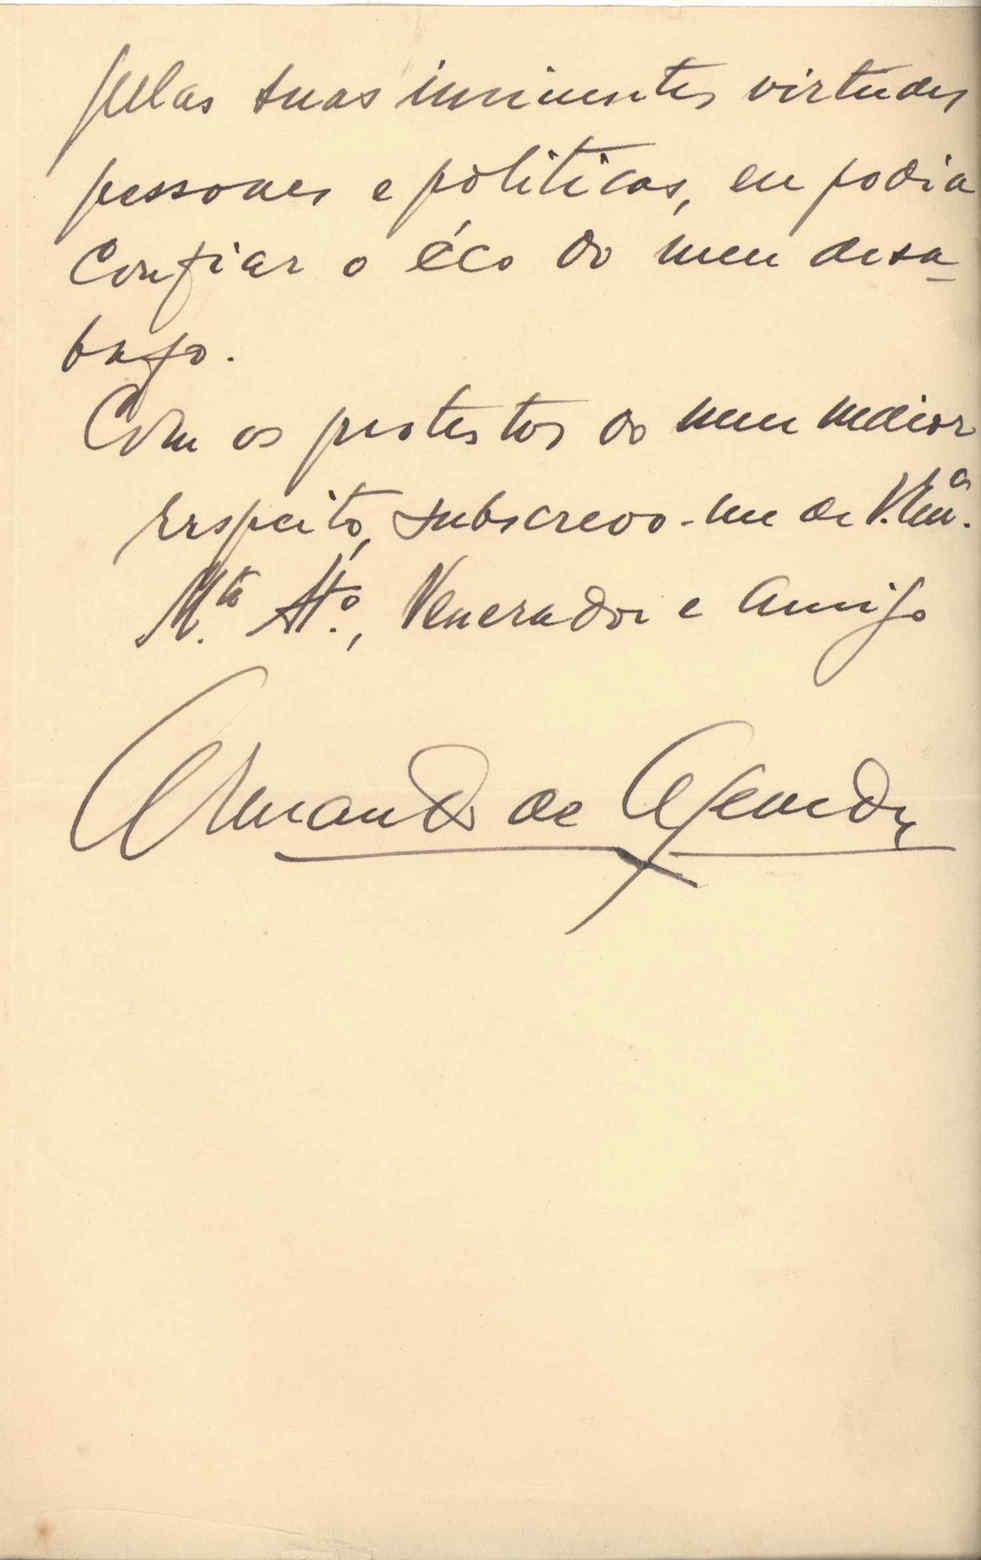 pelas suas iminentes virtudes
pessoaes e politicas, eu podia
confiar o éco do meu desa-
bafo.
Com os protestos do meu maior
respeito, subscrevo-me de V. Exª.
M.to At.º, Venerador e Amigo
Armando de Azevedo